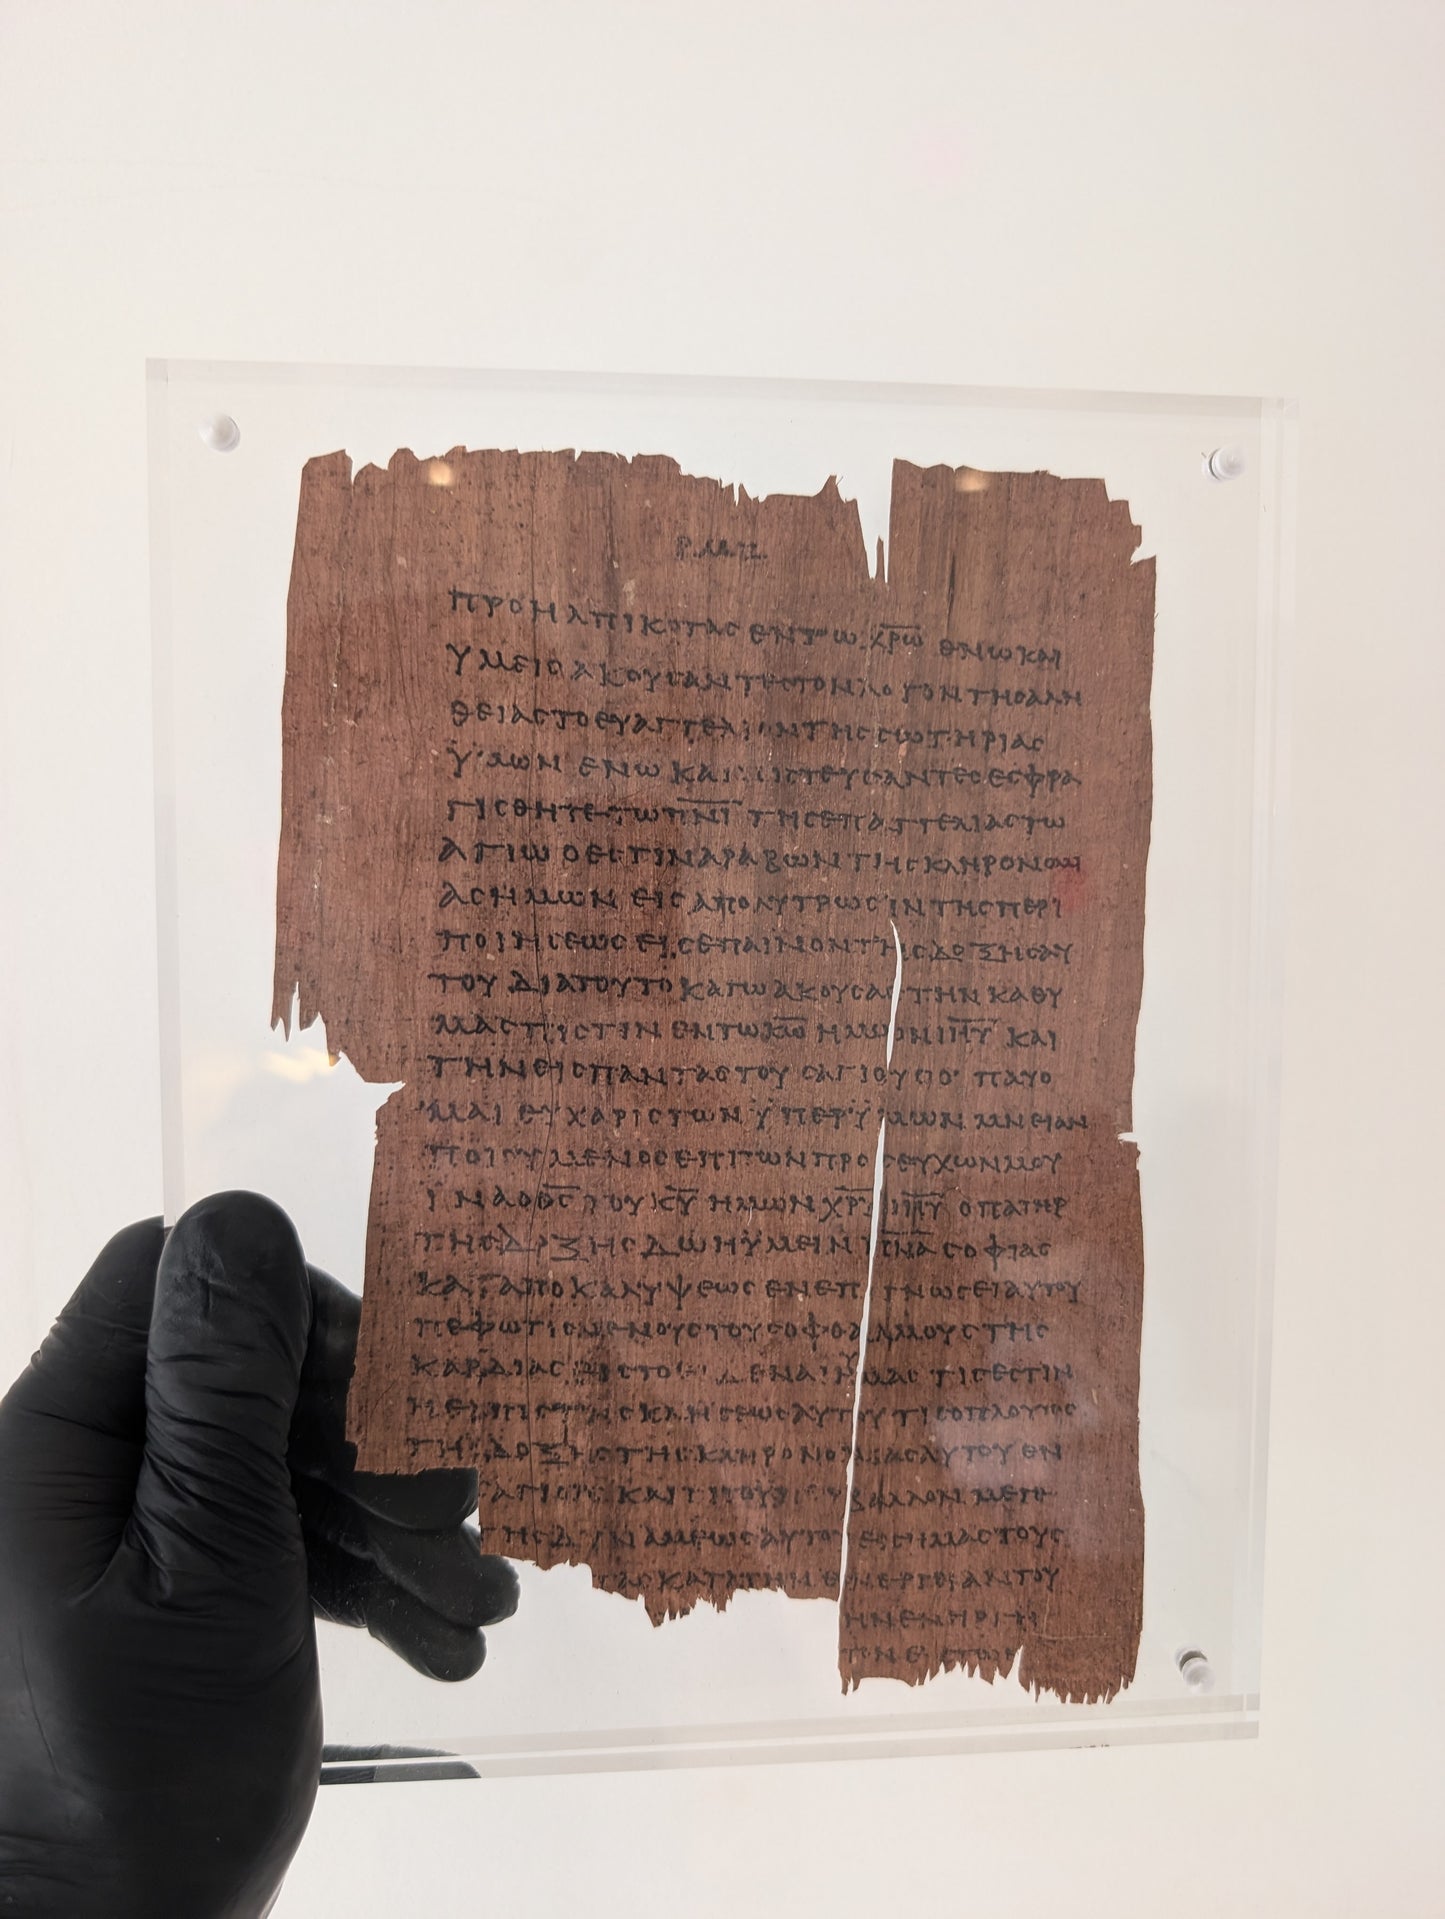 Ρ̣ΜΖ
ΠΡΟΗΛΠΙΚΟΤΑϹ ΕΝ ΤΩ ΧΡΩ ΕΝ Ω ΚΑΙ
ΥΜΕΙϹ ΑΚΟΥϹΑΝΤΕϹ ΤΟΝ ΛΟΓΟΝ ΤΗϹ ΑΛΗ
ΘΕΙΑϹ ΤΟ ΕΥΑΓΓΕΛΙΟΝ ΤΗϹ ϹΩΤΗΡΙΑϹ
ΥΜΩΝ ΕΝ Ω ΚΑΙ ΠΙϹΤΕΥϹΑΝΤΕϹ ΕϹΦΡΑ
ΓΙϹΘΗΤΕ ΤΩ ΠΝΙ ΤΗϹ ΕΠΑΓΓΕΛΙΑϹ ΤΩ
ΑΓΙΩ Ο ΕϹΤΙΝ ΑΡΑΒΩΝ ΤΗϹ ΚΛΗΡΟΝΟΜΙ
ΑϹ ΗΜΩΝ ΕΙϹ ΑΠΟΛΥΤΡΩϹΙΝ ΤΗϹ ΠΕΡΙ
ΠΟΙΗϹΕΩϹ ΕΙϹ ΕΠΑΙΝΟΝ ΤΗϹ ΔΟΞΗϹ ΑΥ
ΤΟΥ ΔΙΑ ΤΟΥΤΟ ΚΑΓΩ ΑΚΟΥϹΑϹ ΤΗΝ ΚΑΘ Υ
ΜΑϹ ΠΙϹΤΙΝ ΕΝ ΤΩ ΚΩ ΙΗΥ ΚΑΙ
ΤΗΝ ΕΙϹ ΠΑΝΤΑϹ ΤΟΥϹ ΑΓΙΟΥϹ ΟΥ ΠΑΥΟ
ΜΑΙ ΕΥΧΑΡΙϹΤΩΝ ΫΠΕΡ ΫΜΩΝ ΜΝΕΙΑΝ
ΠΟΙΟΥΜΕΝΟϹ ΕΠΙ ΤΩΝ ΠΡΟϹΕΥΧΩΝ ΜΟΥ
ΪΝΑ Ο ΘϹ ΤΟΥ ΚΥ ΗΜΩΝ ΧΡΥ ΙΗΥ Ο ΠΑΤΗΡ
ΤΗϹ ΔΟΞΗϹ ΔΩΗ ΫΜΕΙΝ ΠΝΑ ϹΟΦΙΑϹ
ΚΑΙ ΑΠΟΚΑΛΥΨΕΩϹ ΕΝ ΕΠΙΓΝΩϹΕΙ ΑΥΤΟΥ
ΠΕΦΩΤΙϹΜΕΝΟΥϹ ΤΟΥϹ ΟΦΘΑΛΜΟΥϹ ΤΗϹ
ΚΑΡΔΙΑϹ ΕΙϹ ΤΟ ΕΙΔΕΝΑΙ ΥΜΑϹ ΤΙϹ ΕϹΤΙΝ
Η ΕΛΠΙϹ ΤΗϹ ΚΛΗϹΕΩϹ ΑΥΤΟΥ ΤΙϹ Ο ΠΛΟΥΤΟϹ
ΤΗϹ ΔΟΞΗϹ ΤΗϹ ΚΛΗΡΟΝΟΜΙΑϹ ΑΥΤΟΥ ΕΝ
ΑΓΙΟΙϹ ΚΑΙ ΤΙ ΤΟ ΥΠΕΡΒΑΛΛΟΝ ΜΕΓΕ
ΤΗϹ ΔΥΝΑΜΕΩϹ ΑΥΤΟΥ ΕΙϹ ΗΜΑϹ ΤΟΥϹ
ΤΑϹ ΚΑΤΑ ΤΗΝ ΕΝΕΡΓΕΙΑΝ ΤΟΥ
ΗΝ ΕΝΗΡΓΗ